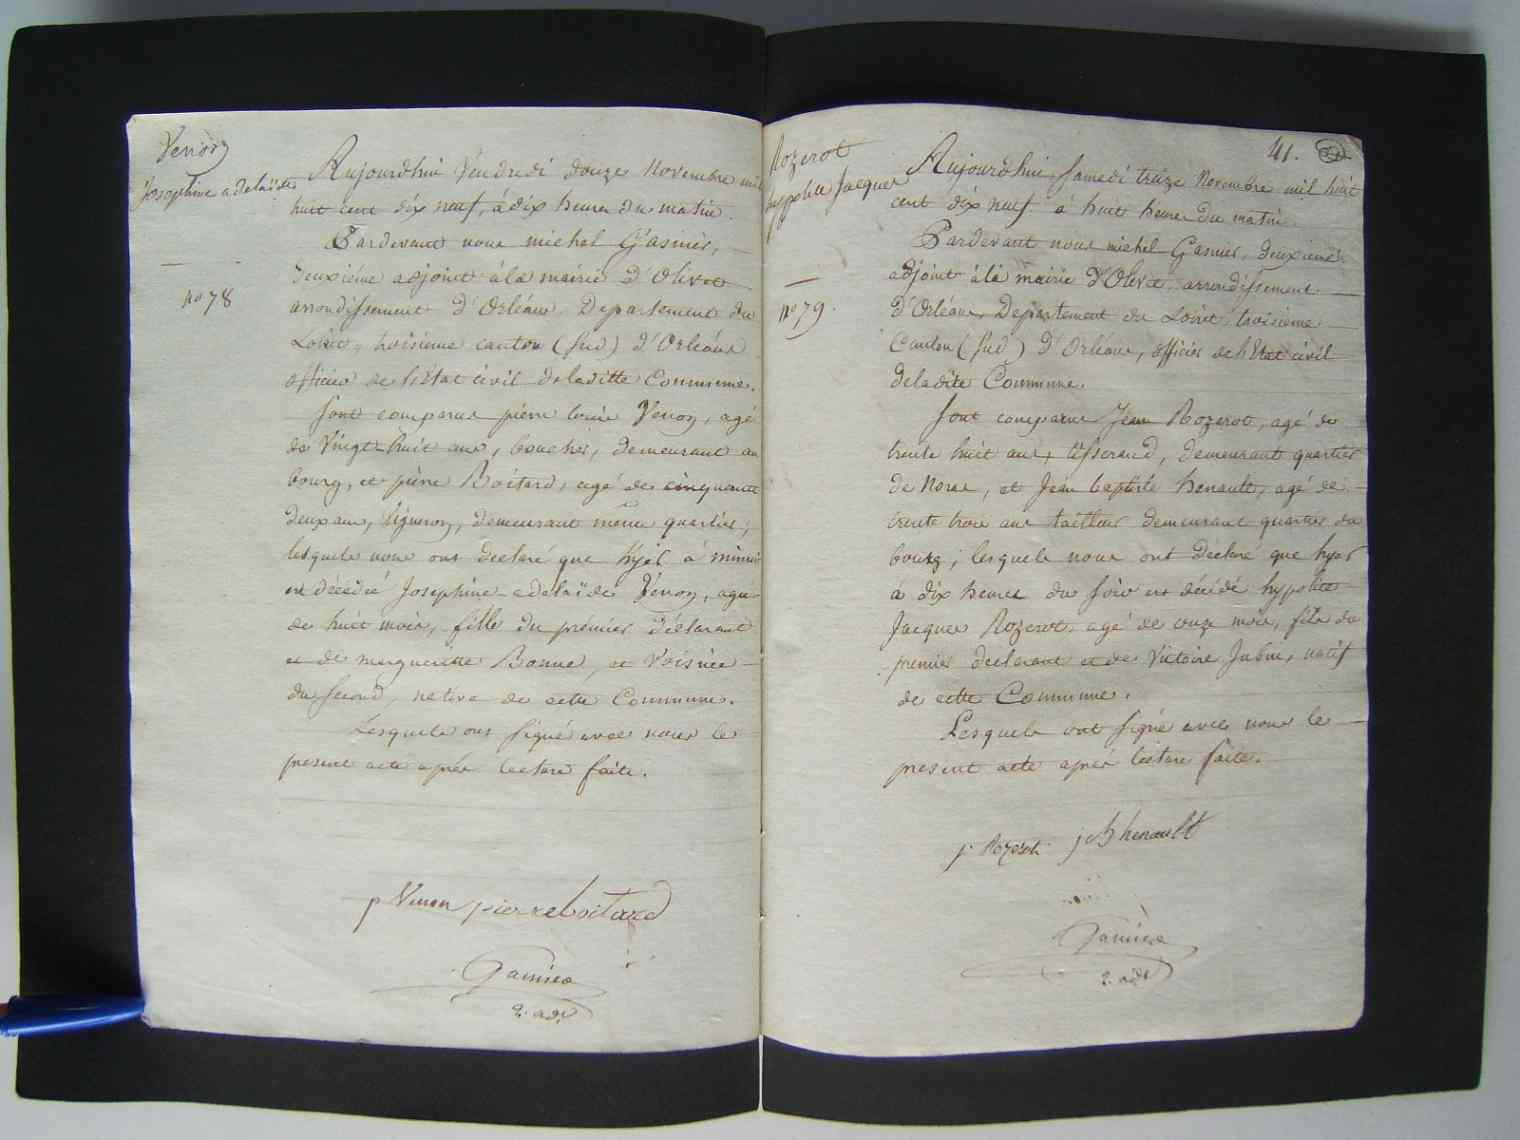 Venon
Josephine adelaïde
n° 78
Aujourdhui Vendredi douze Novembre mil
huit cent dix neuf, à dix heures du matin.
Pardevant nous michel Gasnier,
deuxiéme adjoint àla mairie d'Olivet
arrondissement d'Orléans, Departement du
Loiret, troisième canton (sud) d'Orléans
officier de l'Etat civil deladitte Commune.
Sont comparus pierre louis Venon, agé
de Vingt huit ans, boucher, demeurant au
bourg, et pierre Boitard, agé de cinquante
deux ans, vigneron, demeurant même quartier;
lesquels nous ont declaré que hyer à minuit
est décédée Josephine adelaïde Venon, agée
de huit mois, fille du prémier déclarant
et de margueritte Bonne, et Voisinée
du second, native de cette Commune.
Lesquels ont signé avec nous le
present acte après lecture faite.
p Venon pierre boitard
Gasnier
2. adj
41.
Rozerot
hyppolitte Jacques
n° 79.
Aujourdhui Samedi treize Novembre mil huit
cent dix neuf à huit heures du matin.
Pardevant nous michel Gasnier, deuxieme
adjoint àla mairie d'Olivet arrondissement
d'Orléans, Departement du Loiret, troisieme
Canton (sud) d'Orléans, officier de l'Etat civil
deladite Commune.
Sont comparus Jean Rozerot, agé de
trente huit ans, tisserand, demeurant quartier
de Noras, et Jean baptiste henault, agé de
trente trois ans tailleur demeurant quartier du
bourg; lesquels nous ont déclaré que hyer
à dix heures du soir est décédé hypolite
Jacques Rozerot, agé de onze mois, fils du
premier declarant et de Victoire, natif
de cette Commune.
Lesquels ont signé avec nous le
present acte après lecture faite.
j. Rozerot j b henault
Gasnier
2. adj